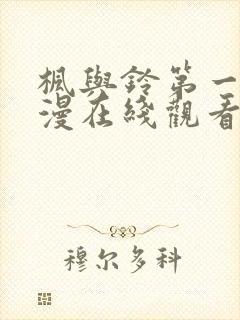 楓與鈴第一
漫在綫觀看
穆尔多科